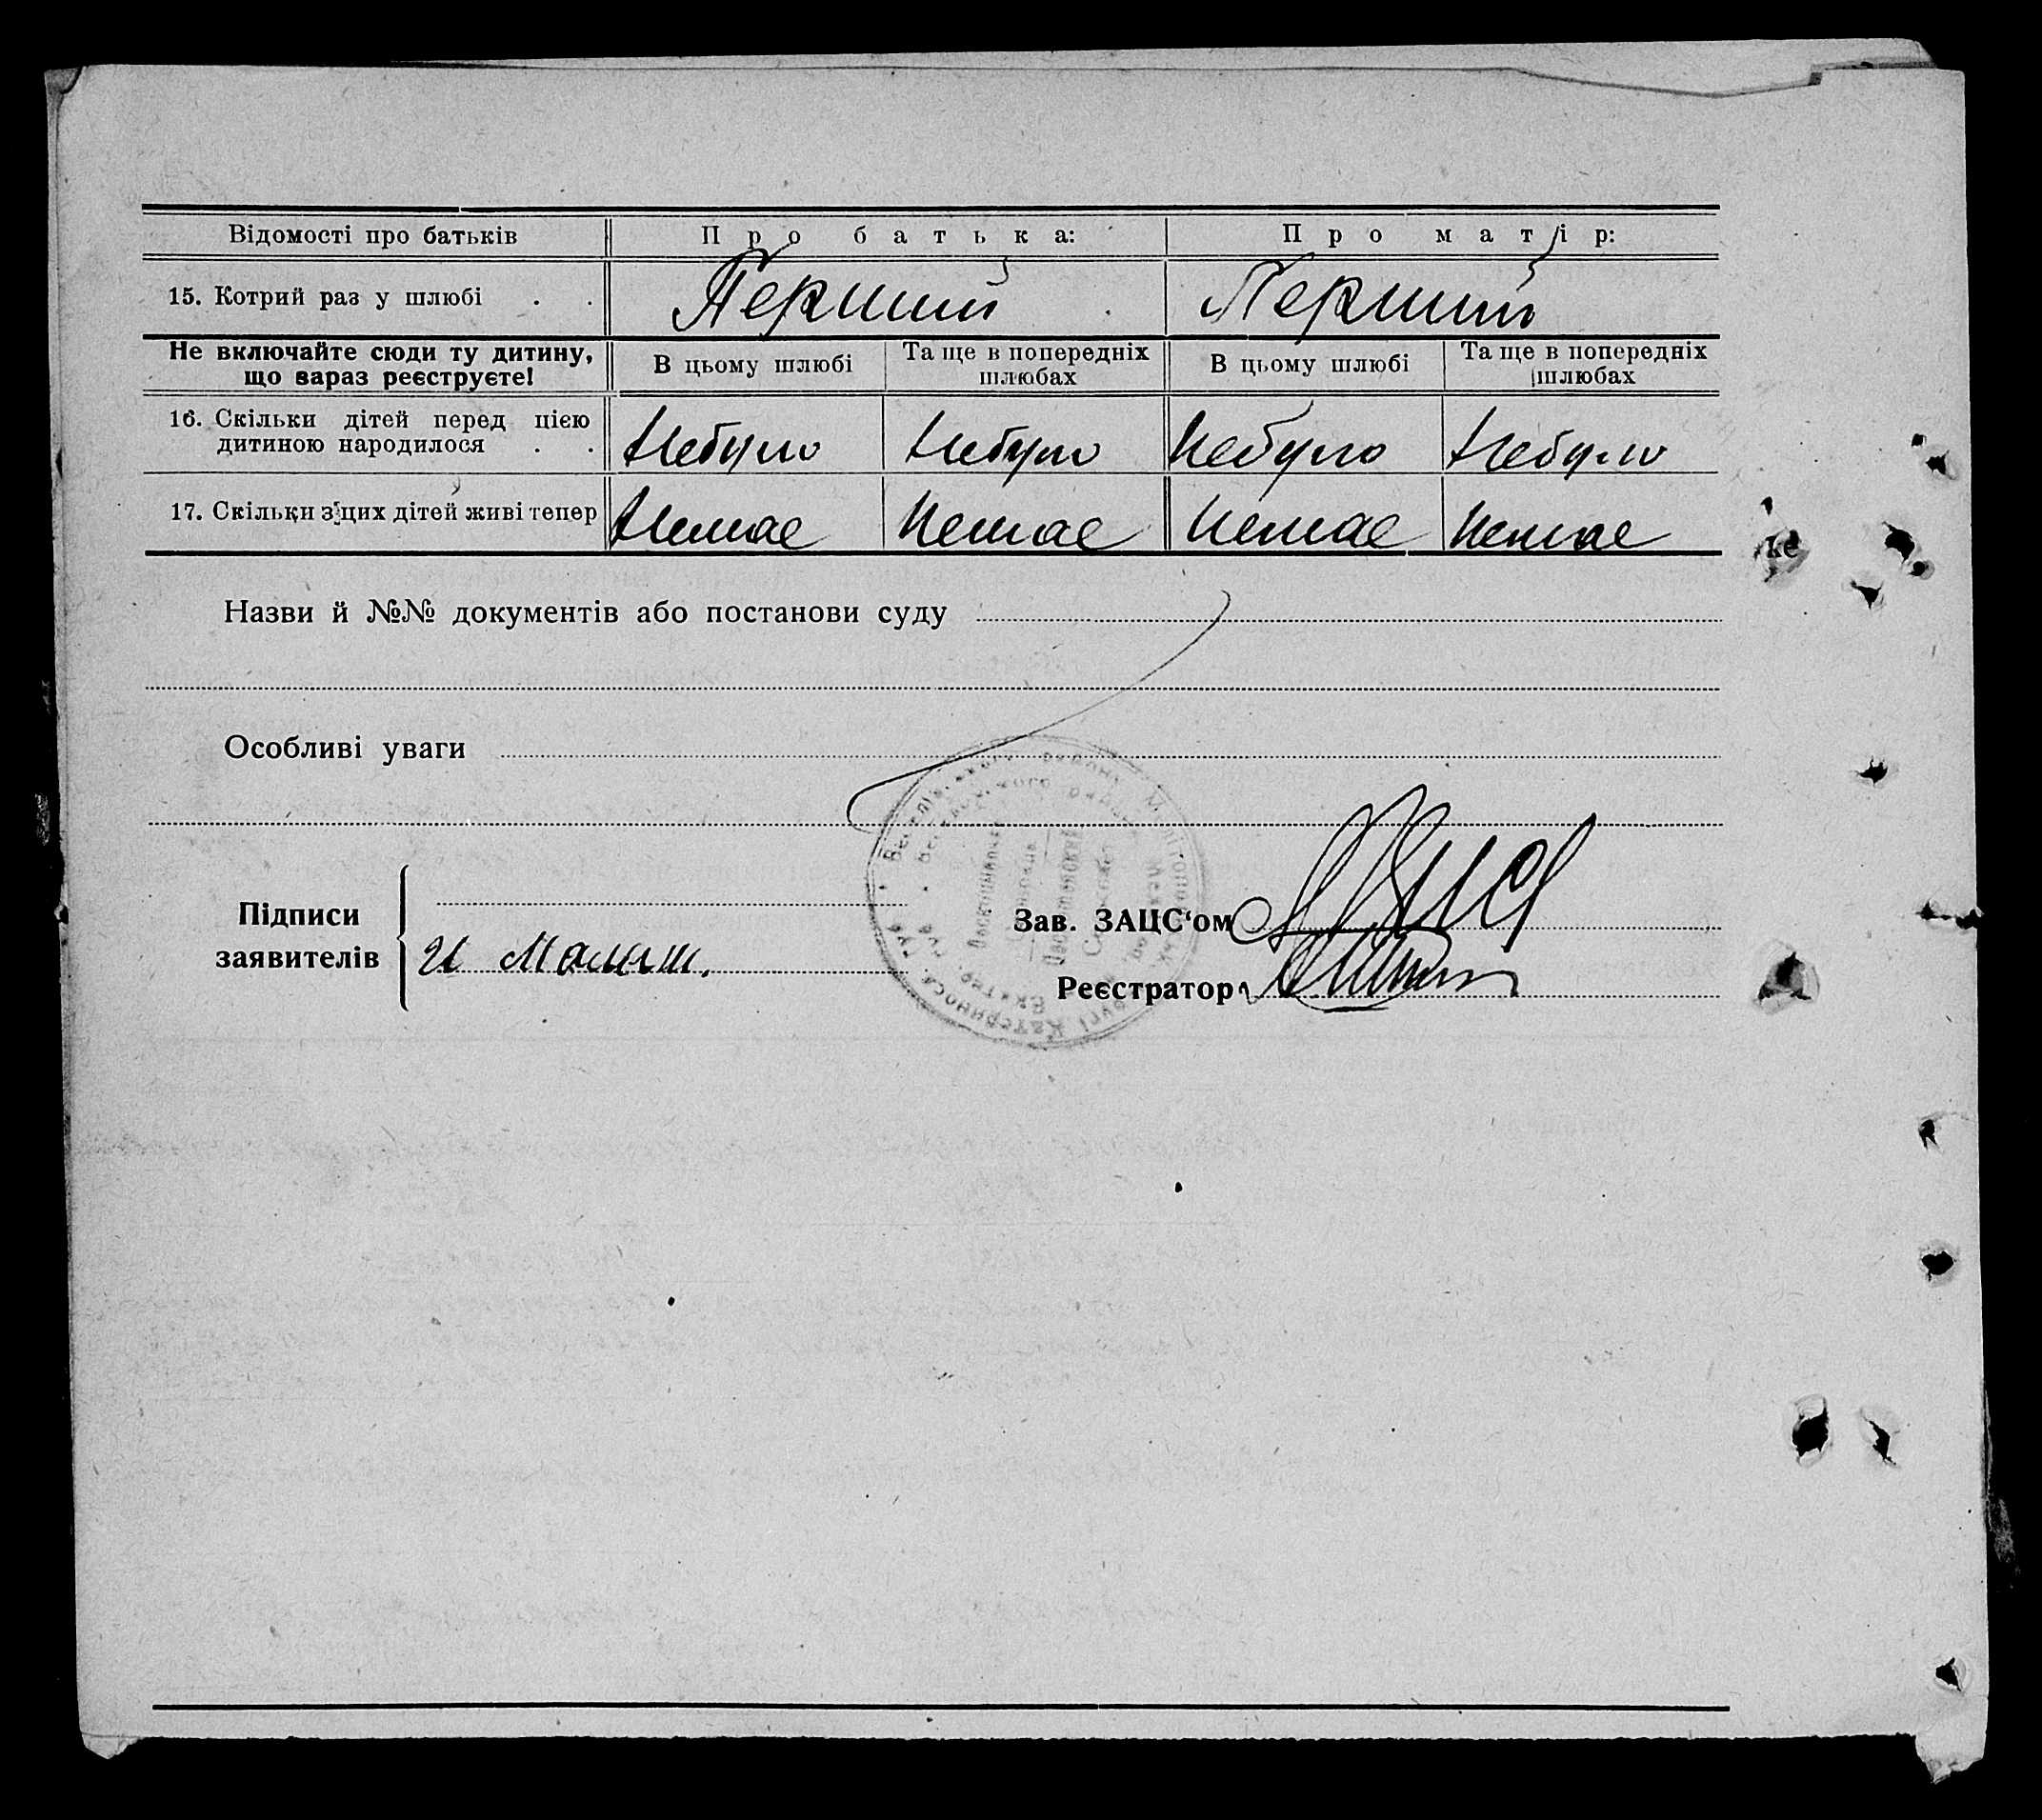 Відомості про батьків Про батька: Про матір:
15. Котрий раз у шлюбі . . Перший Перший
Не включайте сюди ту дитину, що зараз реєструєте! В цьому шлюбі Та ще в попередніх шлюбах В цьому шлюбі Та ще в попередніх шлюбах
16. Скільки дітей перед цією
дитиною народилося . . Небуло Небуло Небуло Небуло
17. Скільки з цих дітей живі тепер Немає Немає Немає Немає
Назви й №№ документів або постанови суду
Особливі уваги
Підписи
заявителів
И Малыш.
Зав. ЗАЦС'ом
Реєстратор